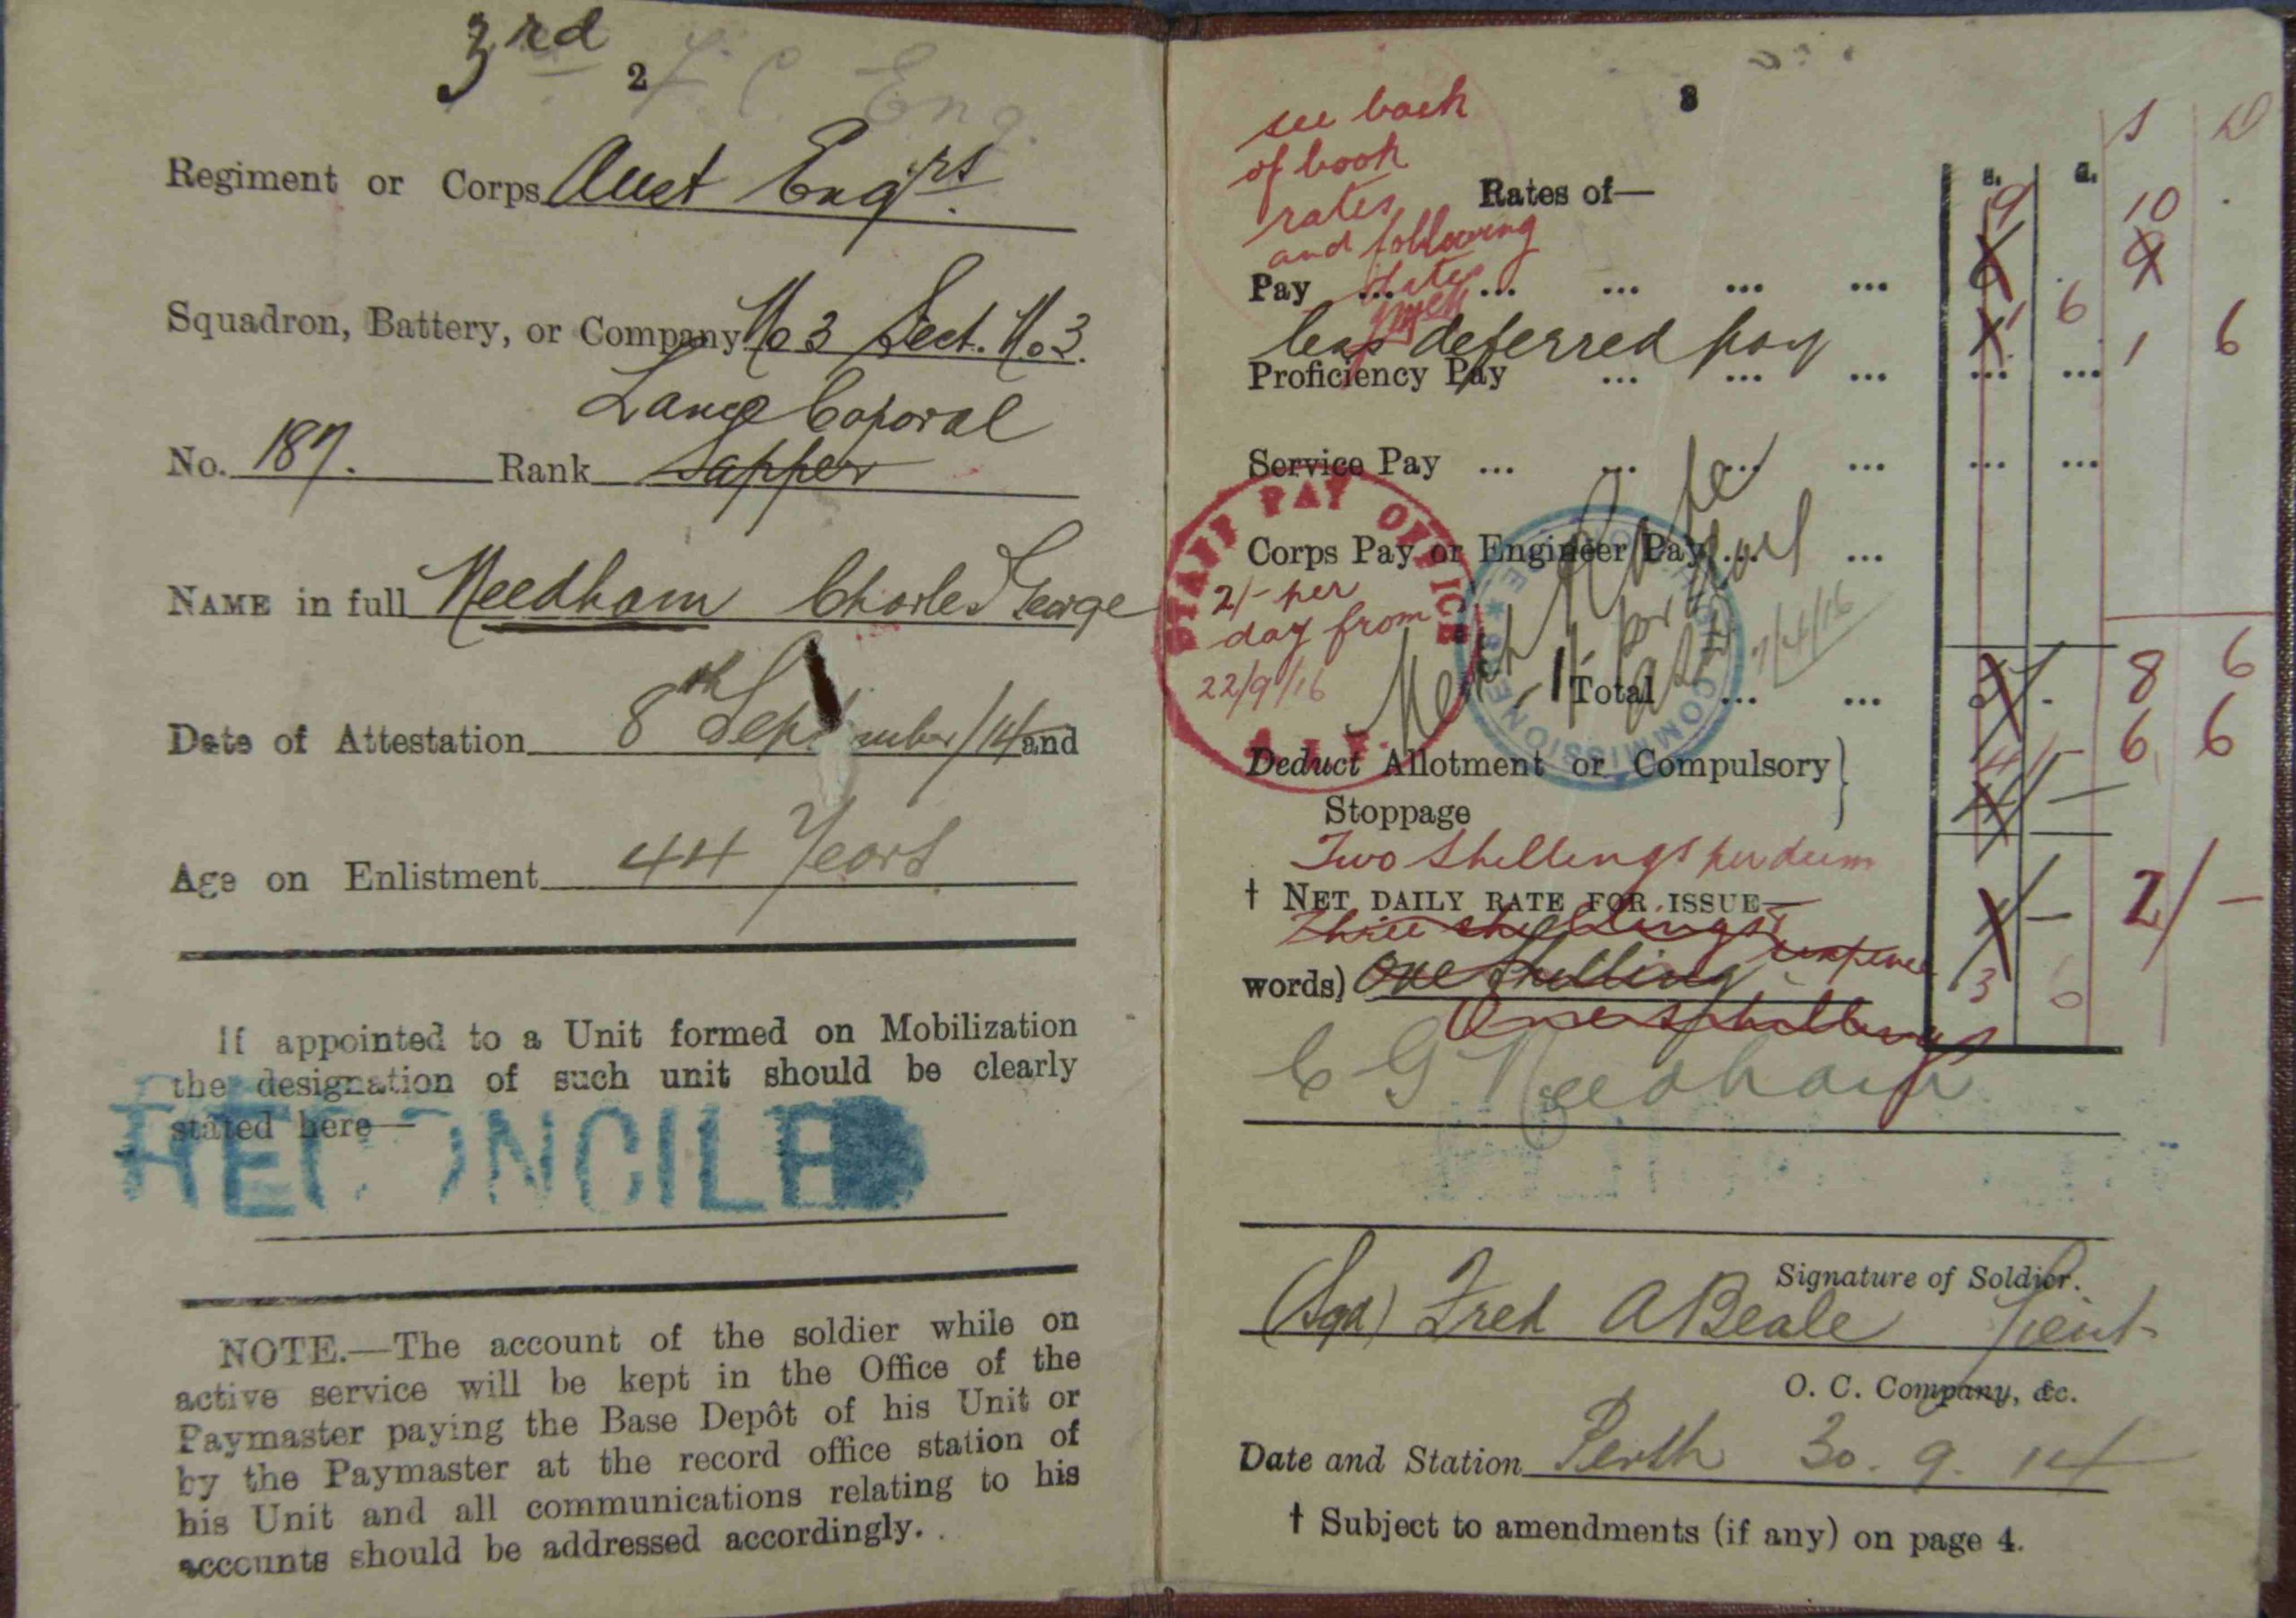 3rd
2 F. C Eng.
Regiment or Corps Aust Engrs.
Squadron, Battery, or Company No 3 Sect. No 3.
Lance Coporal
No. 187. Rank Sapper
NAME in full Needham Charles George
Date of Attestation 8th September/14 and
Age on Enlistment 44 Years
If appointed to a Unit formed on Mobilization
the designation of such unit should be clearly
stated here—
RECONCILED
NOTE.—The account of the soldier while on
active service will be kept in the Office of the
Paymaster paying the Base Depôt of his Unit or
by the Paymaster at the record office station of
his Unit and all communications relating to his
accounts should be addressed accordingly.
3
see back
of book
rates
and following
dates
S D
s. d.
Rates of—
9 10
Pay ... ... ... ... ... 6 9
less deferred pay 1 6 1 6
Proficiency Pay ... ... ... ... ...
Service Pay ... ... ... ... ... ...
Corps Pay or Engineer Pay ... ...
STAFF PAY OFFICE
A.I.F.
2/- per
day from
22/9/16
HIGH COMMISSIONER
Next
1/-
7/4/16
Total ... ... 8 6
Deduct Allotment or Compulsory 6 6
Stoppage
Two Shillings per diem
† NET DAILY RATE FOR ISSUE— 1/- 2/-
Three shillings sixpence
words) One Shilling 3
One shilling
C G Needham
Signature of Soldier.
(Sgd) Fred A Beale Lieut
O. C. Company, &c.
Date and Station Perth 30. 9. 14
† Subject to amendments (if any) on page 4.